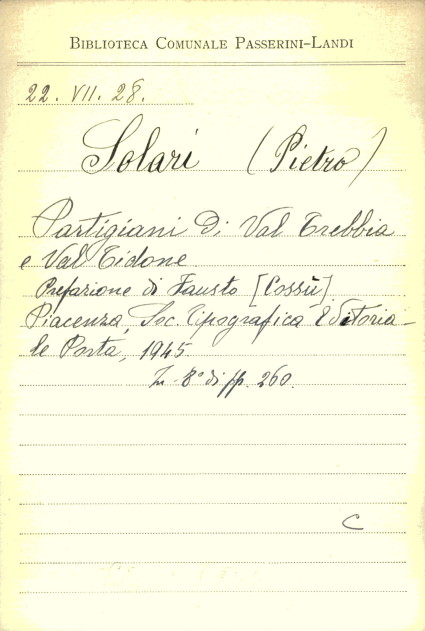 BIBLIOTECA COMUNALE PASSERINI-LANDI
22. VII. 28.
Solari (Pietro)
Partigiani di Val Trebbia
e Val Tidone
Prefazione di Fausto [Cossù]
Piacenza, Soc. Tipografica Editoria-
le Porta, 1945
In-8° di pp. 260.
C